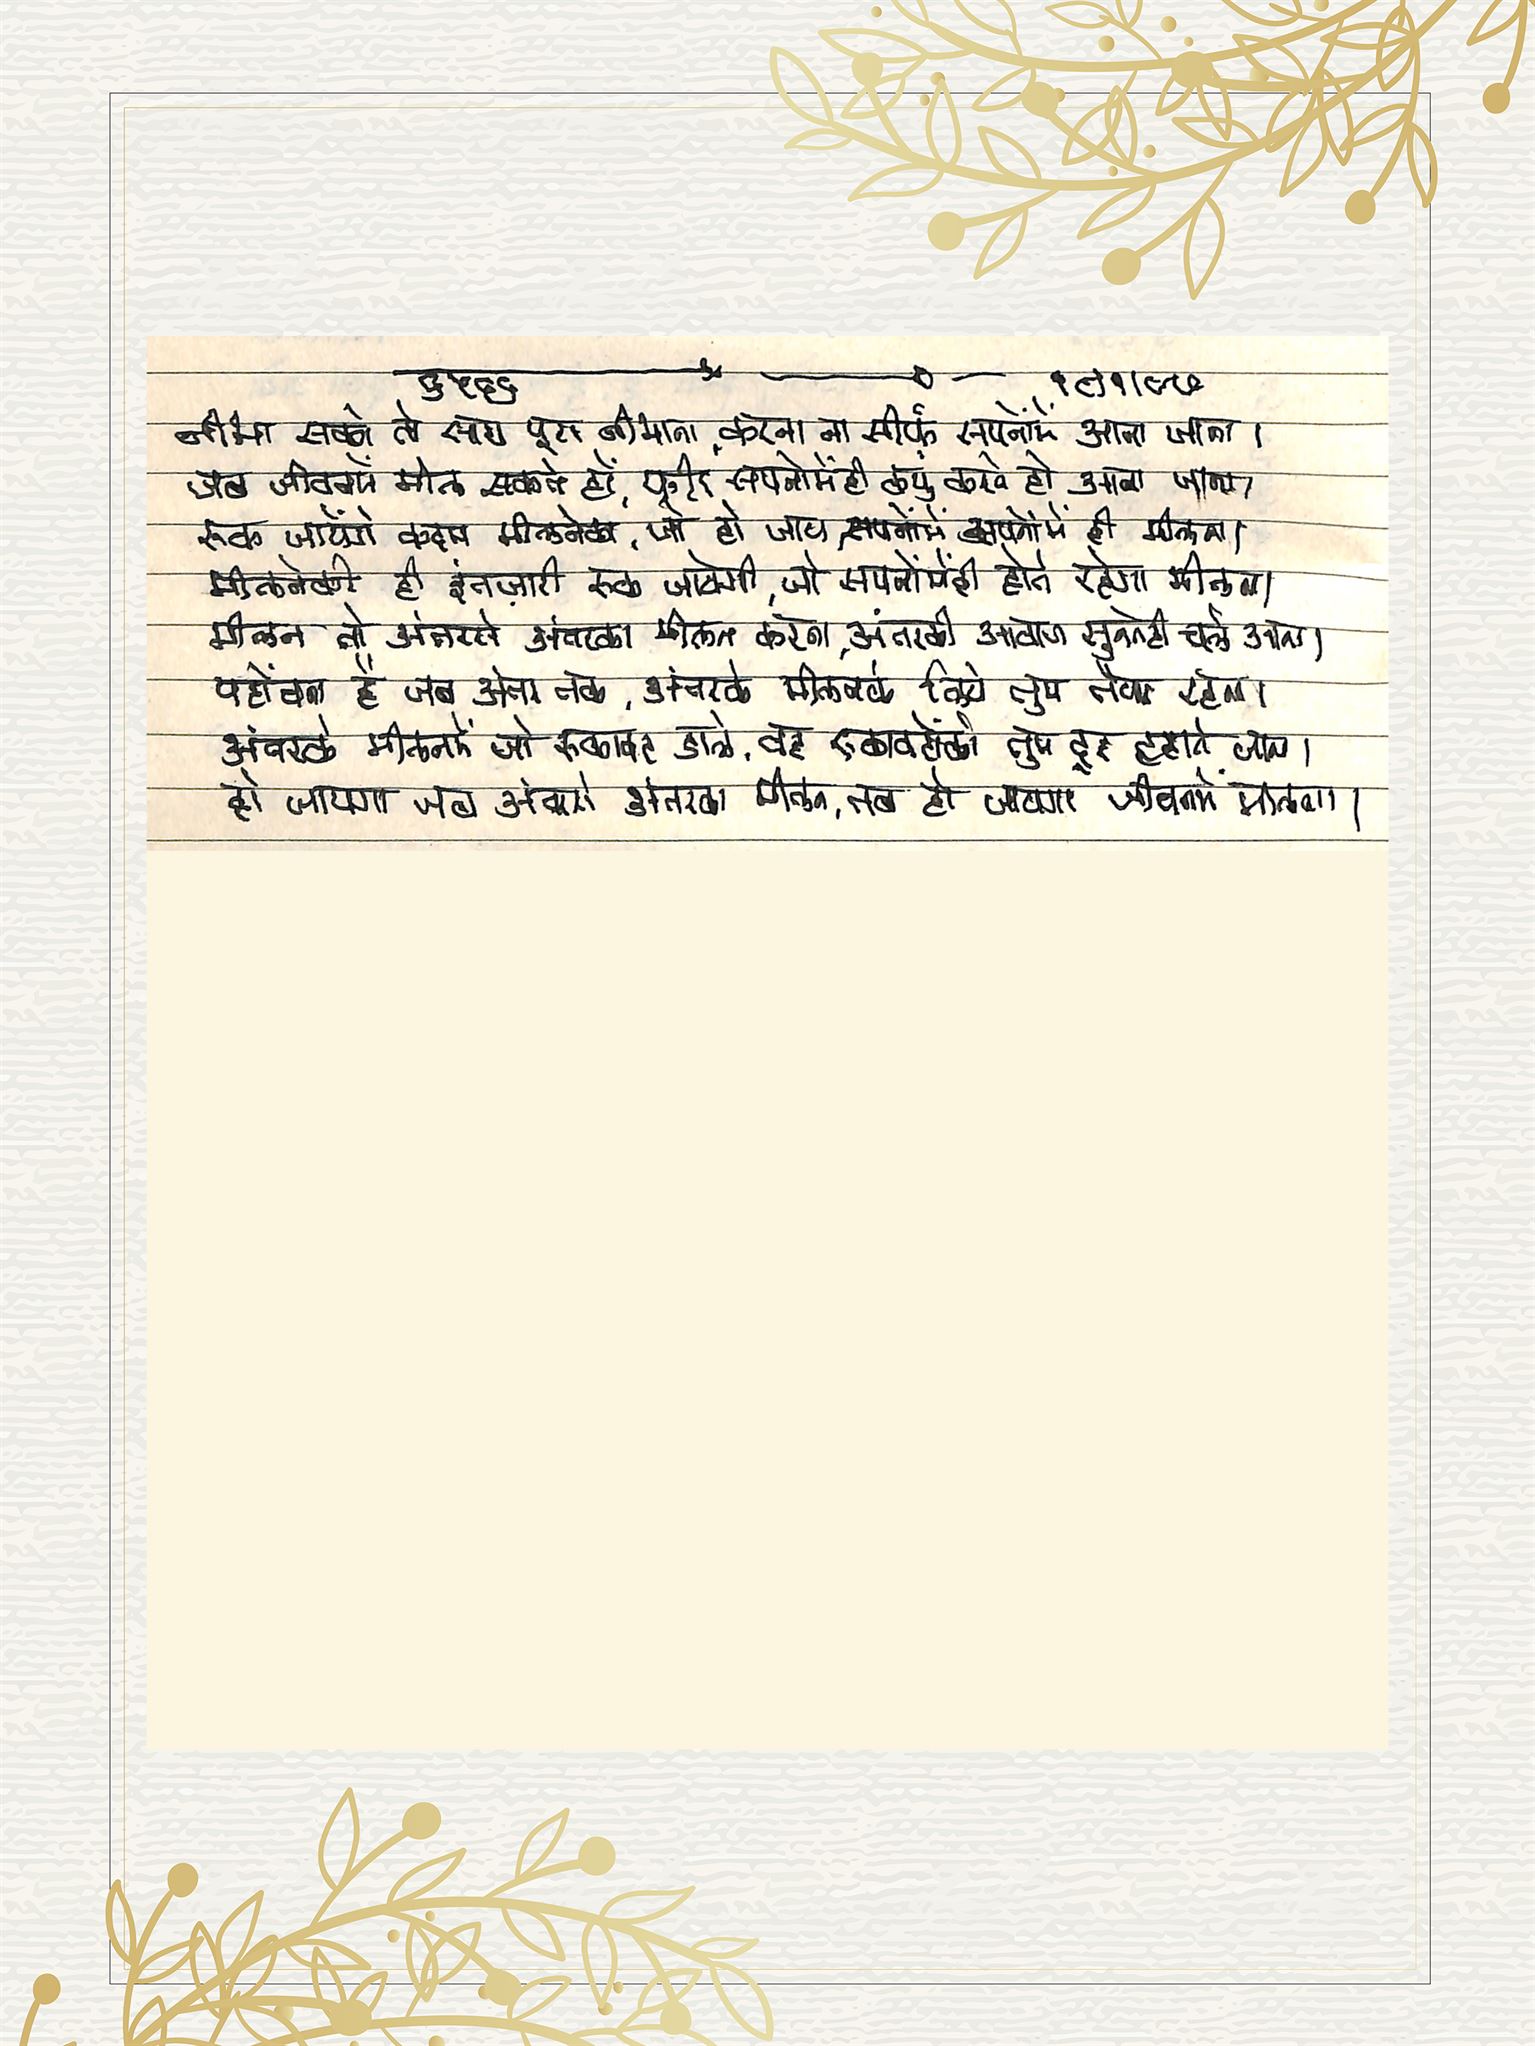 नीभा सको तो साथ पूरा नीभाना, करना ना सीर्फ सपनोंमें आना जाना ।
जब जीवनमें मील सकते हों, फीर सपनोमेंही कयुं करते हो आना जाना
रूक जायेंगे कदम मीलनेका, जो हो जाय सपनोंमें सपनोंमें ही मीलन ।
मीलनेकी ही इंतज़ारी रूक जायेगी, जो सपनोंमेंही होते रहेगा मीलन ।
मीलन तो अंतरसे अंतरका मीलन करना, अंतरकी आवाज सुनतेही चले आना ।
पहोंचना है जब अंतर तक, अंतरके मीलनके लिये तुम तैयार रहना ।
अंतरके मीलनमें जो रूकावट डाले, वह रूकावटोंको तुम दूर हटाते जाना ।
हो जायगा जब अंतरसे अंतरका मीलन, तब हो जायगा जीवनमें मीलन ।